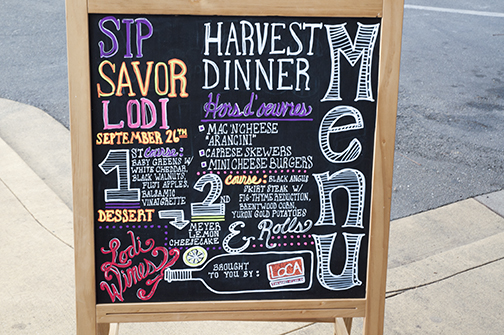 SIP
SAVOR
LODI
SEPTEMBER 26TH
HARVEST
DINNER
Hors d'oeuvres
MAC 'N' CHEESE
"ARANCINI"
CAPRESE SKEWERS
MINI CHEESE BURGERS
Menu
1ST course:
BABY GREENS W/
WHITE CHEDDAR,
BLACK WALNUTS,
FUJI APPLES,
BALSAMIC
VINAIGRETTE
2nd course: BLACK ANGUS
SKIRT STEAK W/
FIG-THYME REDUCTION,
BRENTWOOD CORN,
YUKON GOLD POTATOES
& Rolls
DESSERT
MEYER
LEMON
CHEESECAKE
Lodi
Wines
BROUGHT
TO YOU BY:
LOCA